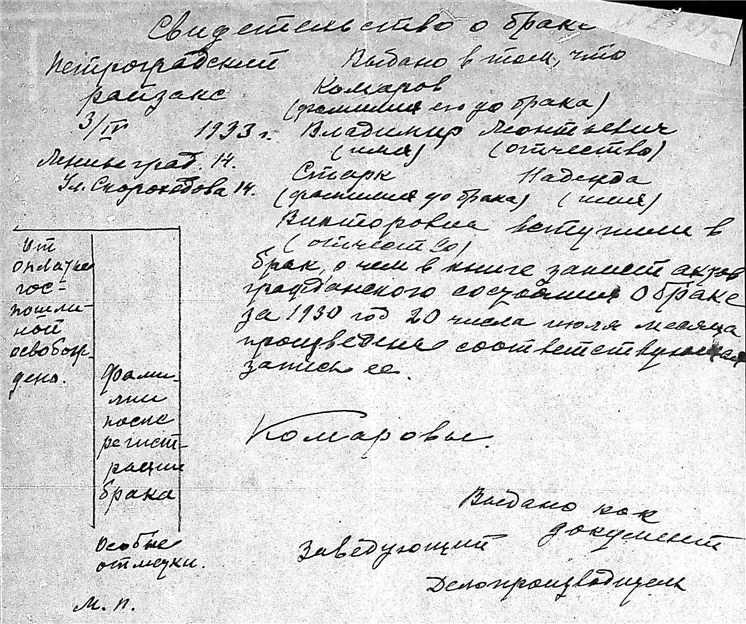 Свидетельство о браке
Петроградский
райзакс
3/IV 1933 г.
Ленинград. 14.
Ул. Скороходова 14.
Выдано в том, что
Комаров
(фамилия его до брака)
Владимир Леонтьевич
(имя) (отчество)
Старк Надежда
(фамилия до брака) (имя)
Викторовна вступили в
(отчество)
брак, о чем в книге записи актов
гражданского состояния о браке
за 1930 год 20 числа июля месяца
произведена соответствующая
запись ее.
От
оплаты
гос-
пошли-
ной
освобож-
дено.
Фами-
лии
после
регист-
рации
брака
Комаровы.
Выдано как
документ
Особые
отметки.
Заведующий
Делопроизводитель
М. п.